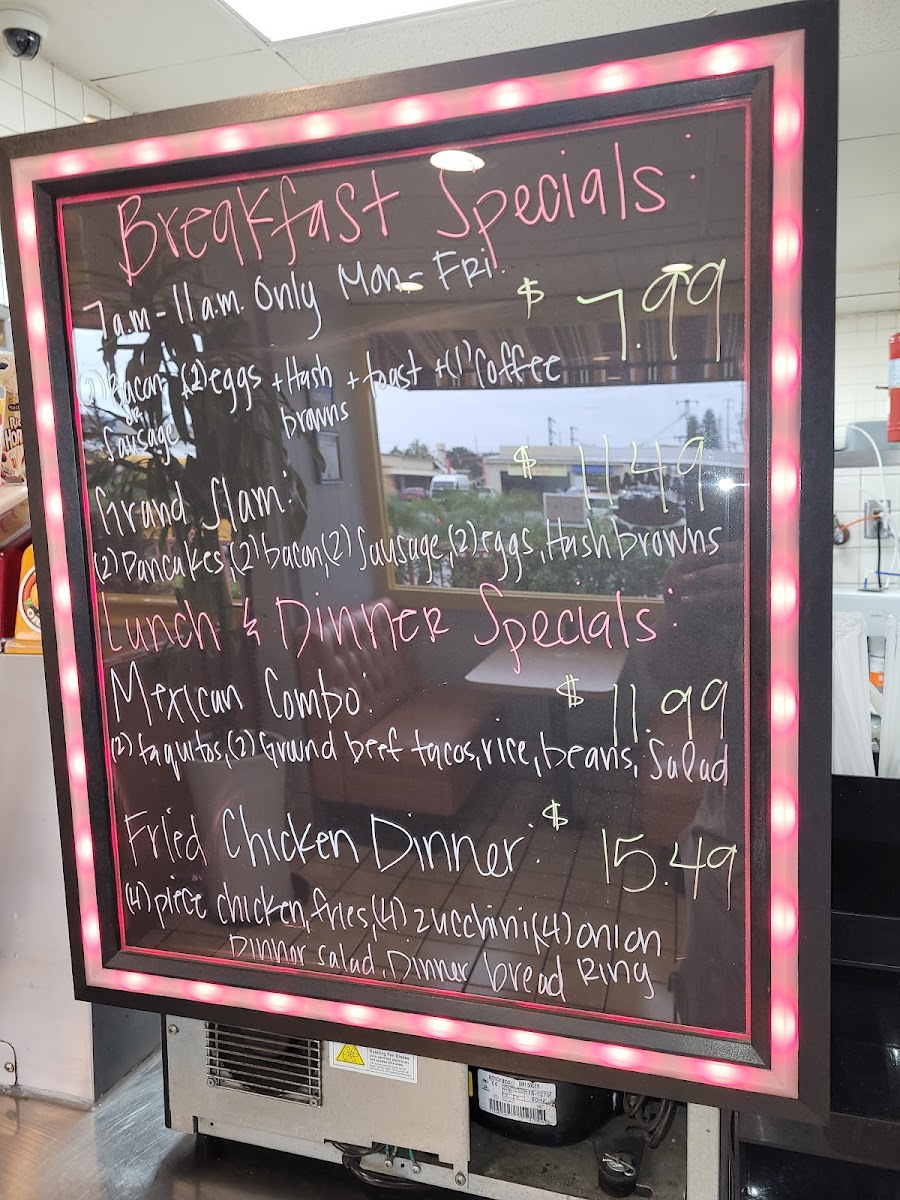 Breakfast Specials:
7 a.m - 11 a.m. Only Mon - Fri.
$ 7.99
Bacon (2) eggs + Hash + toast + (1) Coffee
or browns
Sausage
Grand Slam: $ 11.49
(2) Pancakes, (2) bacon, (2) Sausage, (2) eggs, Hash browns
Lunch & Dinner Specials:
Mexican Combo: $ 11.99
(2) taquitos, (2) Ground beef tacos, rice, beans, Salad
Fried Chicken Dinner: $ 15.49
(4) piece chicken, fries, (4) zucchini (4) onion
Dinnor salad, Dinner bread Ring